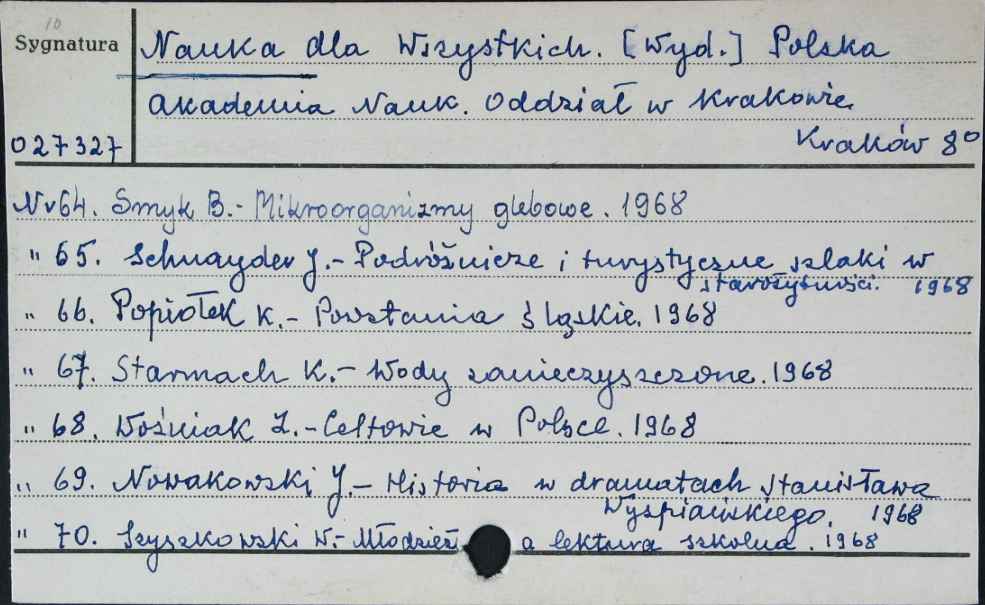 10
Sygnatura
Nauka dla Wszystkich. [Wyd.] Polska
Akademia Nauk. Oddział w Krakowie.
027327
Kraków 8°
Nr 64. Smyk B.- Mikroorganizmy glebowe. 1968
" 65. Schnayder J.- Podróżnicze i turystyczne szlaki w
starożytności. 1968
" 66. Popiołek K.- Powstania śląskie. 1968
" 67. Starmach K.- Wody zanieczyszczone. 1968
" 68. Woźniak Z.- Celtowie w Polsce. 1968
" 69. Nowakowski J.- Historia w dramatach Stanisława
Wyspiańskiego. 1968
" 70. Szyszkowski W.- Młodzież a lektura szkolna. 1968